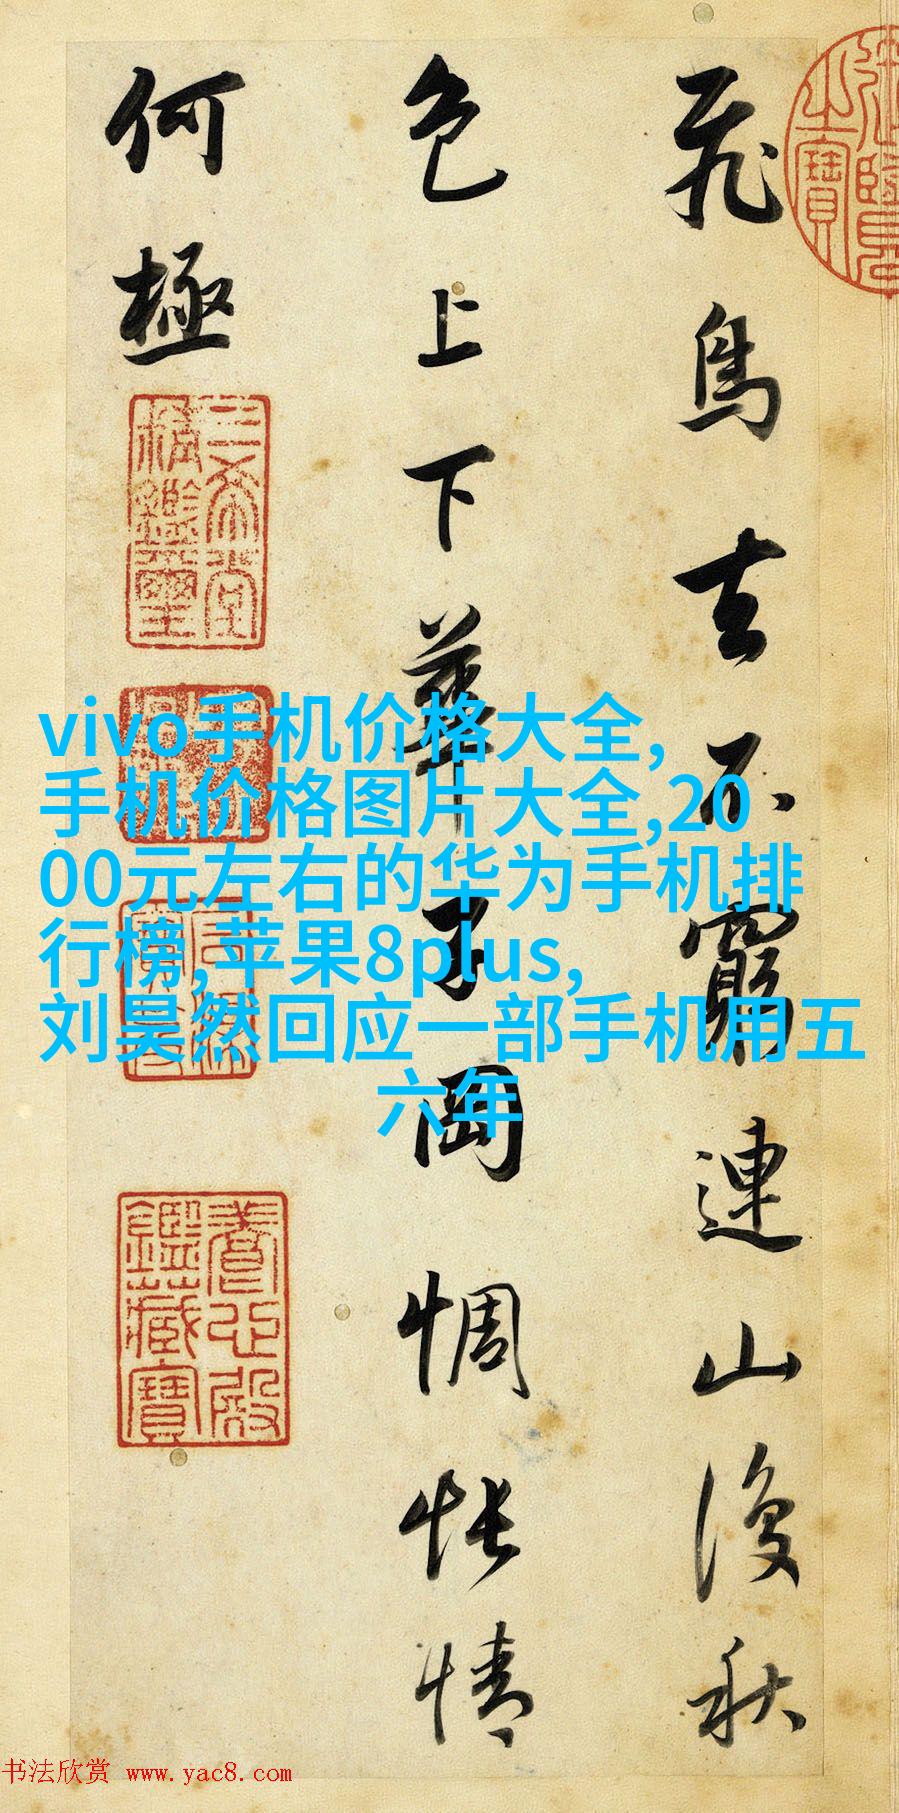 飛鳥去不窮連山復秋
色上下華子岡惆悵情
何極
三希堂
精鑑璽
養心殿
鑑藏寶
vivo手机价格大全,
手机价格图片大全,20
00元左右的华为手机排
行榜,苹果8plus,
刘昊然回应一部手机用五
六年
书法欣赏 www.yac8.com